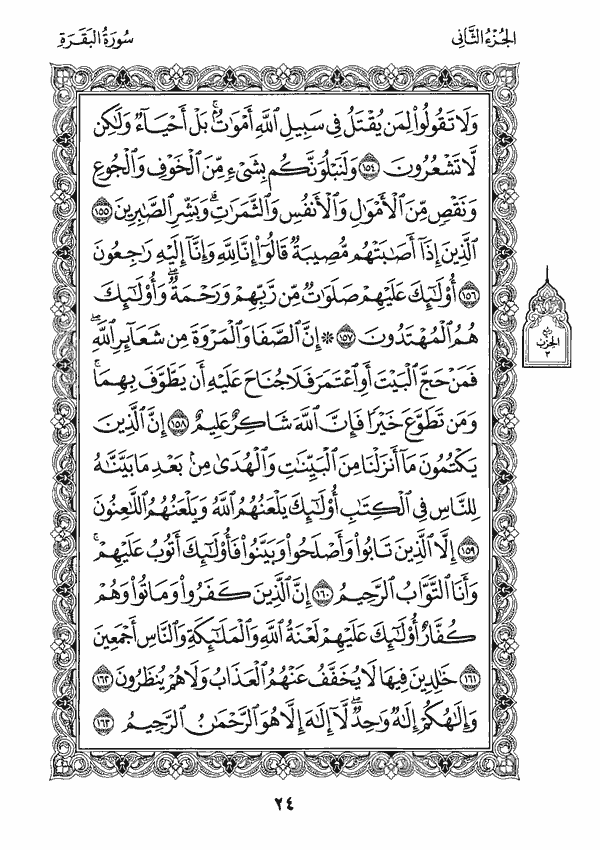 الجزء الثاني
سورة البقرة
وَلَا تَقُولُوا۟ لِمَن يُقْتَلُ فِى سَبِيلِ ٱللَّهِ أَمْوَٰتٌۢ ۚ بَلْ أَحْيَآءٌ وَلَٰكِن
لَّا تَشْعُرُونَ ١٥٤ وَلَنَبْلُوَنَّكُم بِشَىْءٍ مِّنَ ٱلْخَوْفِ وَٱلْجُوعِ
وَنَقْصٍ مِّنَ ٱلْأَمْوَٰلِ وَٱلْأَنفُسِ وَٱلثَّمَرَٰتِ ۗ وَبَشِّرِ ٱلصَّٰبِرِينَ ١٥٥
ٱلَّذِينَ إِذَآ أَصَٰبَتْهُم مُّصِيبَةٌ قَالُوٓا۟ إِنَّا لِلَّهِ وَإِنَّآ إِلَيْهِ رَٰجِعُونَ
١٥٦ أُو۟لَٰٓئِكَ عَلَيْهِمْ صَلَوَٰتٌ مِّن رَّبِّهِمْ وَرَحْمَةٌ ۖ وَأُو۟لَٰٓئِكَ
هُمُ ٱلْمُهْتَدُونَ ١٥٧ ۞ إِنَّ ٱلصَّفَا وَٱلْمَرْوَةَ مِن شَعَآئِرِ ٱللَّهِ ۖ
فَمَنْ حَجَّ ٱلْبَيْتَ أَوِ ٱعْتَمَرَ فَلَا جُنَاحَ عَلَيْهِ أَن يَطَّوَّفَ بِهِمَا ۚ
وَمَن تَطَوَّعَ خَيْرًا فَإِنَّ ٱللَّهَ شَاكِرٌ عَلِيمٌ ١٥٨ إِنَّ ٱلَّذِينَ
يَكْتُمُونَ مَآ أَنزَلْنَا مِنَ ٱلْبَيِّنَٰتِ وَٱلْهُدَىٰ مِنۢ بَعْدِ مَا بَيَّنَّٰهُ
لِلنَّاسِ فِى ٱلْكِتَٰبِ أُو۟لَٰٓئِكَ يَلْعَنُهُمُ ٱللَّهُ وَيَلْعَنُهُمُ ٱللَّٰعِنُونَ
١٥٩ إِلَّا ٱلَّذِينَ تَابُوا۟ وَأَصْلَحُوا۟ وَبَيَّنُوا۟ فَأُو۟لَٰٓئِكَ أَتُوبُ عَلَيْهِمْ ۚ
وَأَنَا ٱلتَّوَّابُ ٱلرَّحِيمُ ١٦٠ إِنَّ ٱلَّذِينَ كَفَرُوا۟ وَمَاتُوا۟ وَهُمْ
كُفَّارٌ أُو۟لَٰٓئِكَ عَلَيْهِمْ لَعْنَةُ ٱللَّهِ وَٱلْمَلَٰٓئِكَةِ وَٱلنَّاسِ أَجْمَعِينَ
١٦١ خَٰلِدِينَ فِيهَا لَا يُخَفَّفُ عَنْهُمُ ٱلْعَذَابُ وَلَا هُمْ يُنظَرُونَ ١٦٢
وَإِلَٰهُكُمْ إِلَٰهٌ وَٰحِدٌ ۖ لَّآ إِلَٰهَ إِلَّا هُوَ ٱلرَّحْمَٰنُ ٱلرَّحِيمُ ١٦٣
ربع
الحزب
٣
٢٤